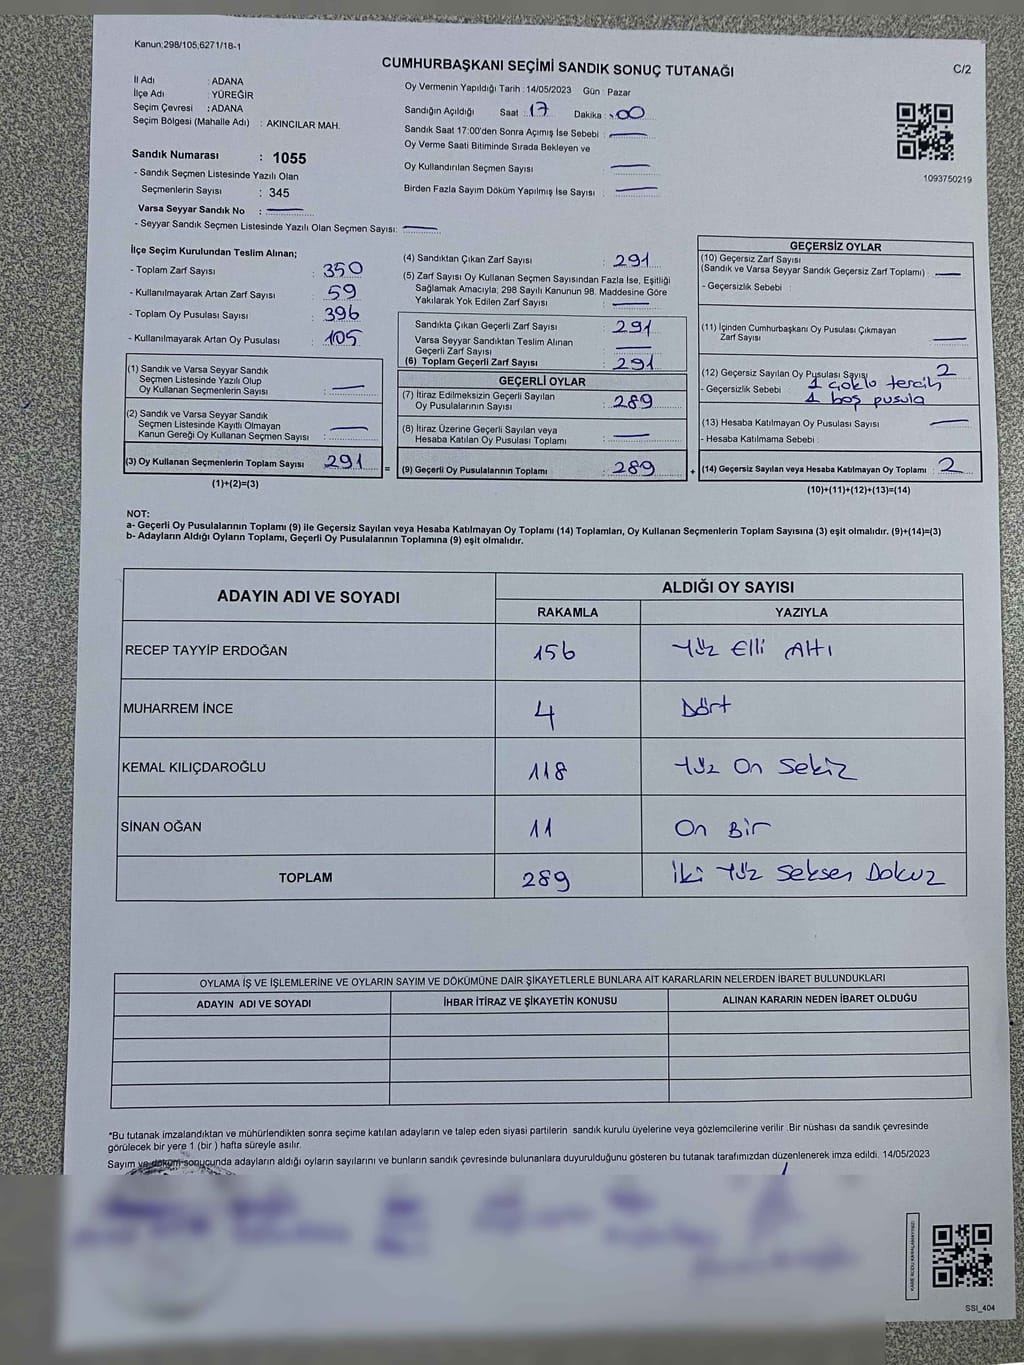 Kanun:298/105,6271/18-1
CUMHURBAŞKANI SEÇİMİ SANDIK SONUÇ TUTANAĞI
C/2
İl Adı : ADANA
İlçe Adı : YÜREĞİR
Seçim Çevresi : ADANA
Seçim Bölgesi (Mahalle Adı) : AKINCILAR MAH.
Sandık Numarası : 1055
- Sandık Seçmen Listesinde Yazılı Olan
Seçmenlerin Sayısı : 345
Varsa Seyyar Sandık No : —
- Seyyar Sandık Seçmen Listesinde Yazılı Olan Seçmen Sayısı: —
Oy Vermenin Yapıldığı Tarih : 14/05/2023 Gün : Pazar
Sandığın Açıldığı Saat : 17 Dakika : 00
Sandık Saat 17:00'den Sonra Açımış İse Sebebi : —
Oy Verme Saati Bitiminde Sırada Bekleyen ve
Oy Kullandırılan Seçmen Sayısı : —
Birden Fazla Sayım Döküm Yapılmış İse Sayısı : —
1093750219
İlçe Seçim Kurulundan Teslim Alınan;
- Toplam Zarf Sayısı : 350
- Kullanılmayarak Artan Zarf Sayısı : 59
- Toplam Oy Pusulası Sayısı : 396
- Kullanılmayarak Artan Oy Pusulası : 105
(1) Sandık ve Varsa Seyyar Sandık
Seçmen Listesinde Yazılı Olup
Oy Kullanan Seçmenlerin Sayısı : —
(2) Sandık ve Varsa Seyyar Sandık
Seçmen Listesinde Kayıtlı Olmayan
Kanun Gereği Oy Kullanan Seçmen Sayısı : —
(3) Oy Kullanan Seçmenlerin Toplam Sayısı : 291 =
(1)+(2)=(3)
(4) Sandıktan Çıkan Zarf Sayısı : 291
(5) Zarf Sayısı Oy Kullanan Seçmen Sayısından Fazla İse, Eşitliği
Sağlamak Amacıyla; 298 Sayılı Kanunun 98. Maddesine Göre
Yakılarak Yok Edilen Zarf Sayısı : —
Sandıkta Çıkan Geçerli Zarf Sayısı : 291
Varsa Seyyar Sandıktan Teslim Alınan
Geçerli Zarf Sayısı : —
(6) Toplam Geçerli Zarf Sayısı : 291
GEÇERLİ OYLAR
(7) İtiraz Edilmeksizin Geçerli Sayılan
Oy Pusulalarının Sayısı : 289
(8) İtiraz Üzerine Geçerli Sayılan veya
Hesaba Katılan Oy Pusulası Toplamı : —
(9) Geçerli Oy Pusulalarının Toplamı : 289 +
GEÇERSİZ OYLAR
(10) Geçersiz Zarf Sayısı
(Sandık ve Varsa Seyyar Sandık Geçersiz Zarf Toplamı) : —
- Geçersizlik Sebebi :
(11) İçinden Cumhurbaşkanı Oy Pusulası Çıkmayan
Zarf Sayısı : —
(12) Geçersiz Sayılan Oy Pusulası Sayısı : 2
- Geçersizlik Sebebi : 1 çoklu tercih
1 boş pusula
(13) Hesaba Katılmayan Oy Pusulası Sayısı : —
- Hesaba Katılmama Sebebi :
(14) Geçersiz Sayılan veya Hesaba Katılmayan Oy Toplamı : 2
(10)+(11)+(12)+(13)=(14)
NOT:
a- Geçerli Oy Pusulalarının Toplamı (9) ile Geçersiz Sayılan veya Hesaba Katılmayan Oy Toplamı (14) Toplamları, Oy Kullanan Seçmenlerin Toplam Sayısına (3) eşit olmalıdır. (9)+(14)=(3)
b- Adayların Aldığı Oyların Toplamı, Geçerli Oy Pusulalarının Toplamına (9) eşit olmalıdır.
ADAYIN ADI VE SOYADI ALDIĞI OY SAYISI
RAKAMLA YAZIYLA
RECEP TAYYİP ERDOĞAN 156 Yüz Elli Altı
MUHARREM İNCE 4 Dört
KEMAL KILIÇDAROĞLU 118 Yüz On Sekiz
SİNAN OĞAN 11 On Bir
TOPLAM 289 İki Yüz Seksen Dokuz
OYLAMA İŞ VE İŞLEMLERİNE VE OYLARIN SAYIM VE DÖKÜMÜNE DAİR ŞİKAYETLERLE BUNLARA AİT KARARLARIN NELERDEN İBARET BULUNDUKLARI
ADAYIN ADI VE SOYADI İHBAR İTİRAZ VE ŞİKAYETİN KONUSU ALINAN KARARIN NEDEN İBARET OLDUĞU
*Bu tutanak imzalandıktan ve mühürlendikten sonra seçime katılan adayların ve talep eden siyasi partilerin sandık kurulu üyelerine veya gözlemcilerine verilir .Bir nüshası da sandık çevresinde
görülecek bir yere 1 (bir ) hafta süreyle asılır.
Sayım ve döküm sonucunda adayların aldığı oyların sayılarını ve bunların sandık çevresinde bulunanlara duyurulduğunu gösteren bu tutanak tarafımızdan düzenlenerek imza edildi. 14/05/2023
SSI_404